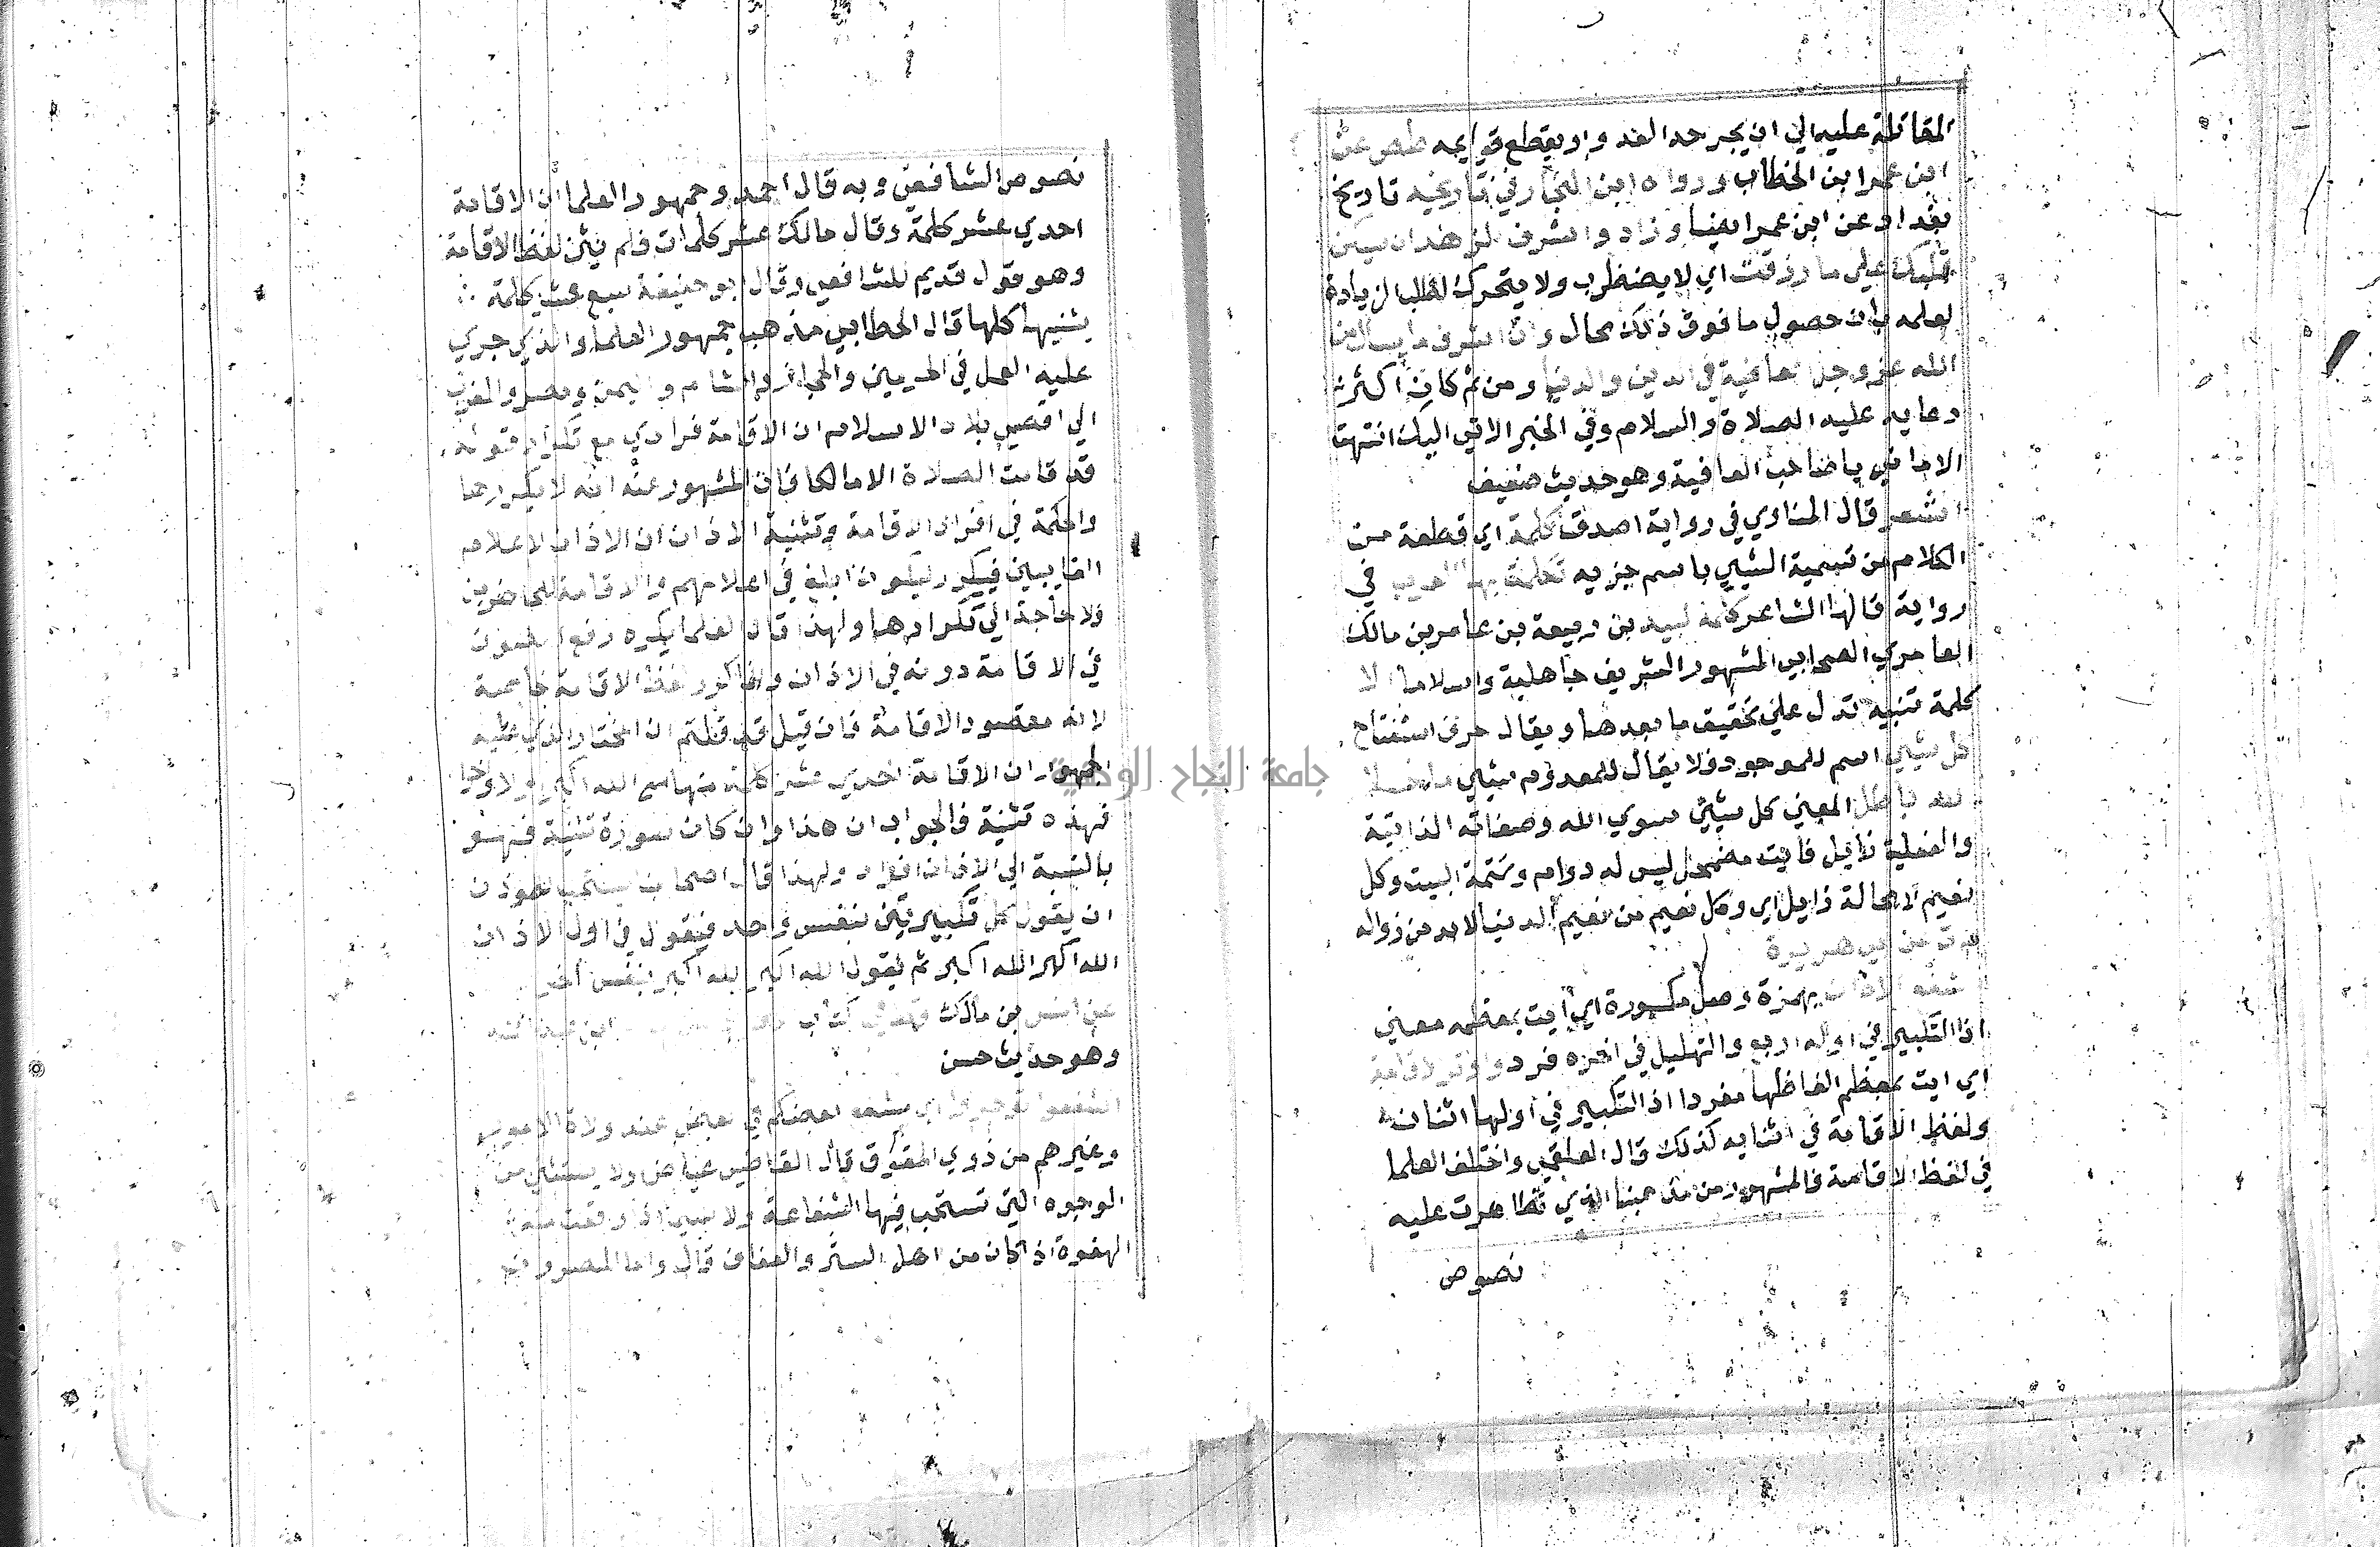 المقاتلة عليه الي ان يجر حد العد و او يقطع قوايمه طص عن
ابن عمر ابن الخطاب ورواه ابن النجار في تاريخيه تاريخ
بغداد عن ابن عمر ايضا وزاد واشرف الزهد ان يسكن
قلبك علي ما رزقت اي لا يضطرب ولا يتحرك لطلب الزيادة
لعلمه بان حصول ما فوق ذلك محال وان اشرف ما يسال من
الله عز وجل العافية في الدين والدنيا ومن ثم كان اكثر
دعايه عليه الصلاة والسلام وفي الخبر الاتي اليك انتهت
الاماني يا صاحب العافية وهو حديث ضعيف
اشعر قال المناوي في رواية اصدق كلمة اي قطعة من
الكلام من تسمية الشيي باسم جزيه تكلمت بها العرب في
رواية قالها الشاعر كلمة لبيد بن ربيعة بن عامر بن مالك
العامري الصحابي المشهور الشريف جاهلية واسلاما الا
كلمة تنبيه تدل علي تحقيق ما بعدها ويقال حرف استفتاح
كل شيي اسم للموجود فلا يقال للمعدوم شيي ما خلا
الله باطل المعني كل شيئ سوي الله وصفاته الذاتية
والفعلية زايل فايت مضمحل ليس له دوام وتتمة البيت وكل
نعيم لا محالة زايل اي وكل نعيم من نعيم الدنيا لا بد من زواله
م ت عن ابي هريرة
شفع الاذان بهمزة وصل مكسورة اي ايت بمعظمه معني
اذا التكبير في اوله اربع والتهليل في اخره فرد واوتر الاقامة
اي ايت بمعظم الفاظها مفردا اذ التكبير في اولها اثنان
ولفظ الاقامة في اثنايه كذلك قال العلقمي واختلف العلما
في لفظ الاقامة فالمشهور من مذهبنا الذي تظاهرت عليه
نصوص
نصوص الشافعي وبه قال احمد وجمهور العلما ان الاقامة
احدي عشر كلمة وقال مالك عشر كلمات فلم يثن لفظ الاقامة
وهو قول قديم للشافعي وقال ابو حنيفة سبع عشر كلمة
يثنيها كلها قال الخطابي مذهب جمهور العلما والذي جري
عليه العمل في الحرمين والحجاز والشام واليمن ومصر والمغرب
الي اقصي بلاد الاسلام ان الاقامة فرادي مع تكرار قوله
قد قامت الصلاة الا مالكا فان المشهور عنه انه لا يكررها
والحكمة في افراد الاقامة وتثنية الاذان ان الاذان لاعلام
الغايبين فيكرر ليكون ابلغ في اعلامهم والاقامة للحاضرين
فلا حاجة الي تكرارها ولهذا قال العلما يكره رفع الصوت
في الاقامة دونه في الاذان وانما كرر لفظ الاقامة خاصة
لانه مقصود الاقامة فان قيل قد قلتم ان المختار الذي عليه
الجمهور ان الاقامة احدي عشر كلمة منها الله اكبر اولا واخرا
فهذه تثنية فالجواب ان هذا وان كان صورة تثنية فهو
بالنسبة الي الاذان افراد ولهذا قال اصحابنا يستحب للموذن
ان يقول كل تكبيرتين بنفس واحد فيقول في اول الاذان
الله اكبر الله اكبر ثم يقول الله اكبر الله اكبر بنفس اخر
عن انس بن مالك
وهو حديث حسن
اشفعوا توجروا اي يشفع بعضكم في بعض عند ولاة الامور
وغيرهم من ذوي الحقوق قال القاضي عياض ولا يستثني من
الوجوه التي تستحب فيها الشفاعة
الهفوة اذ كان من اهل الستر والعفاف قال واما المصرون